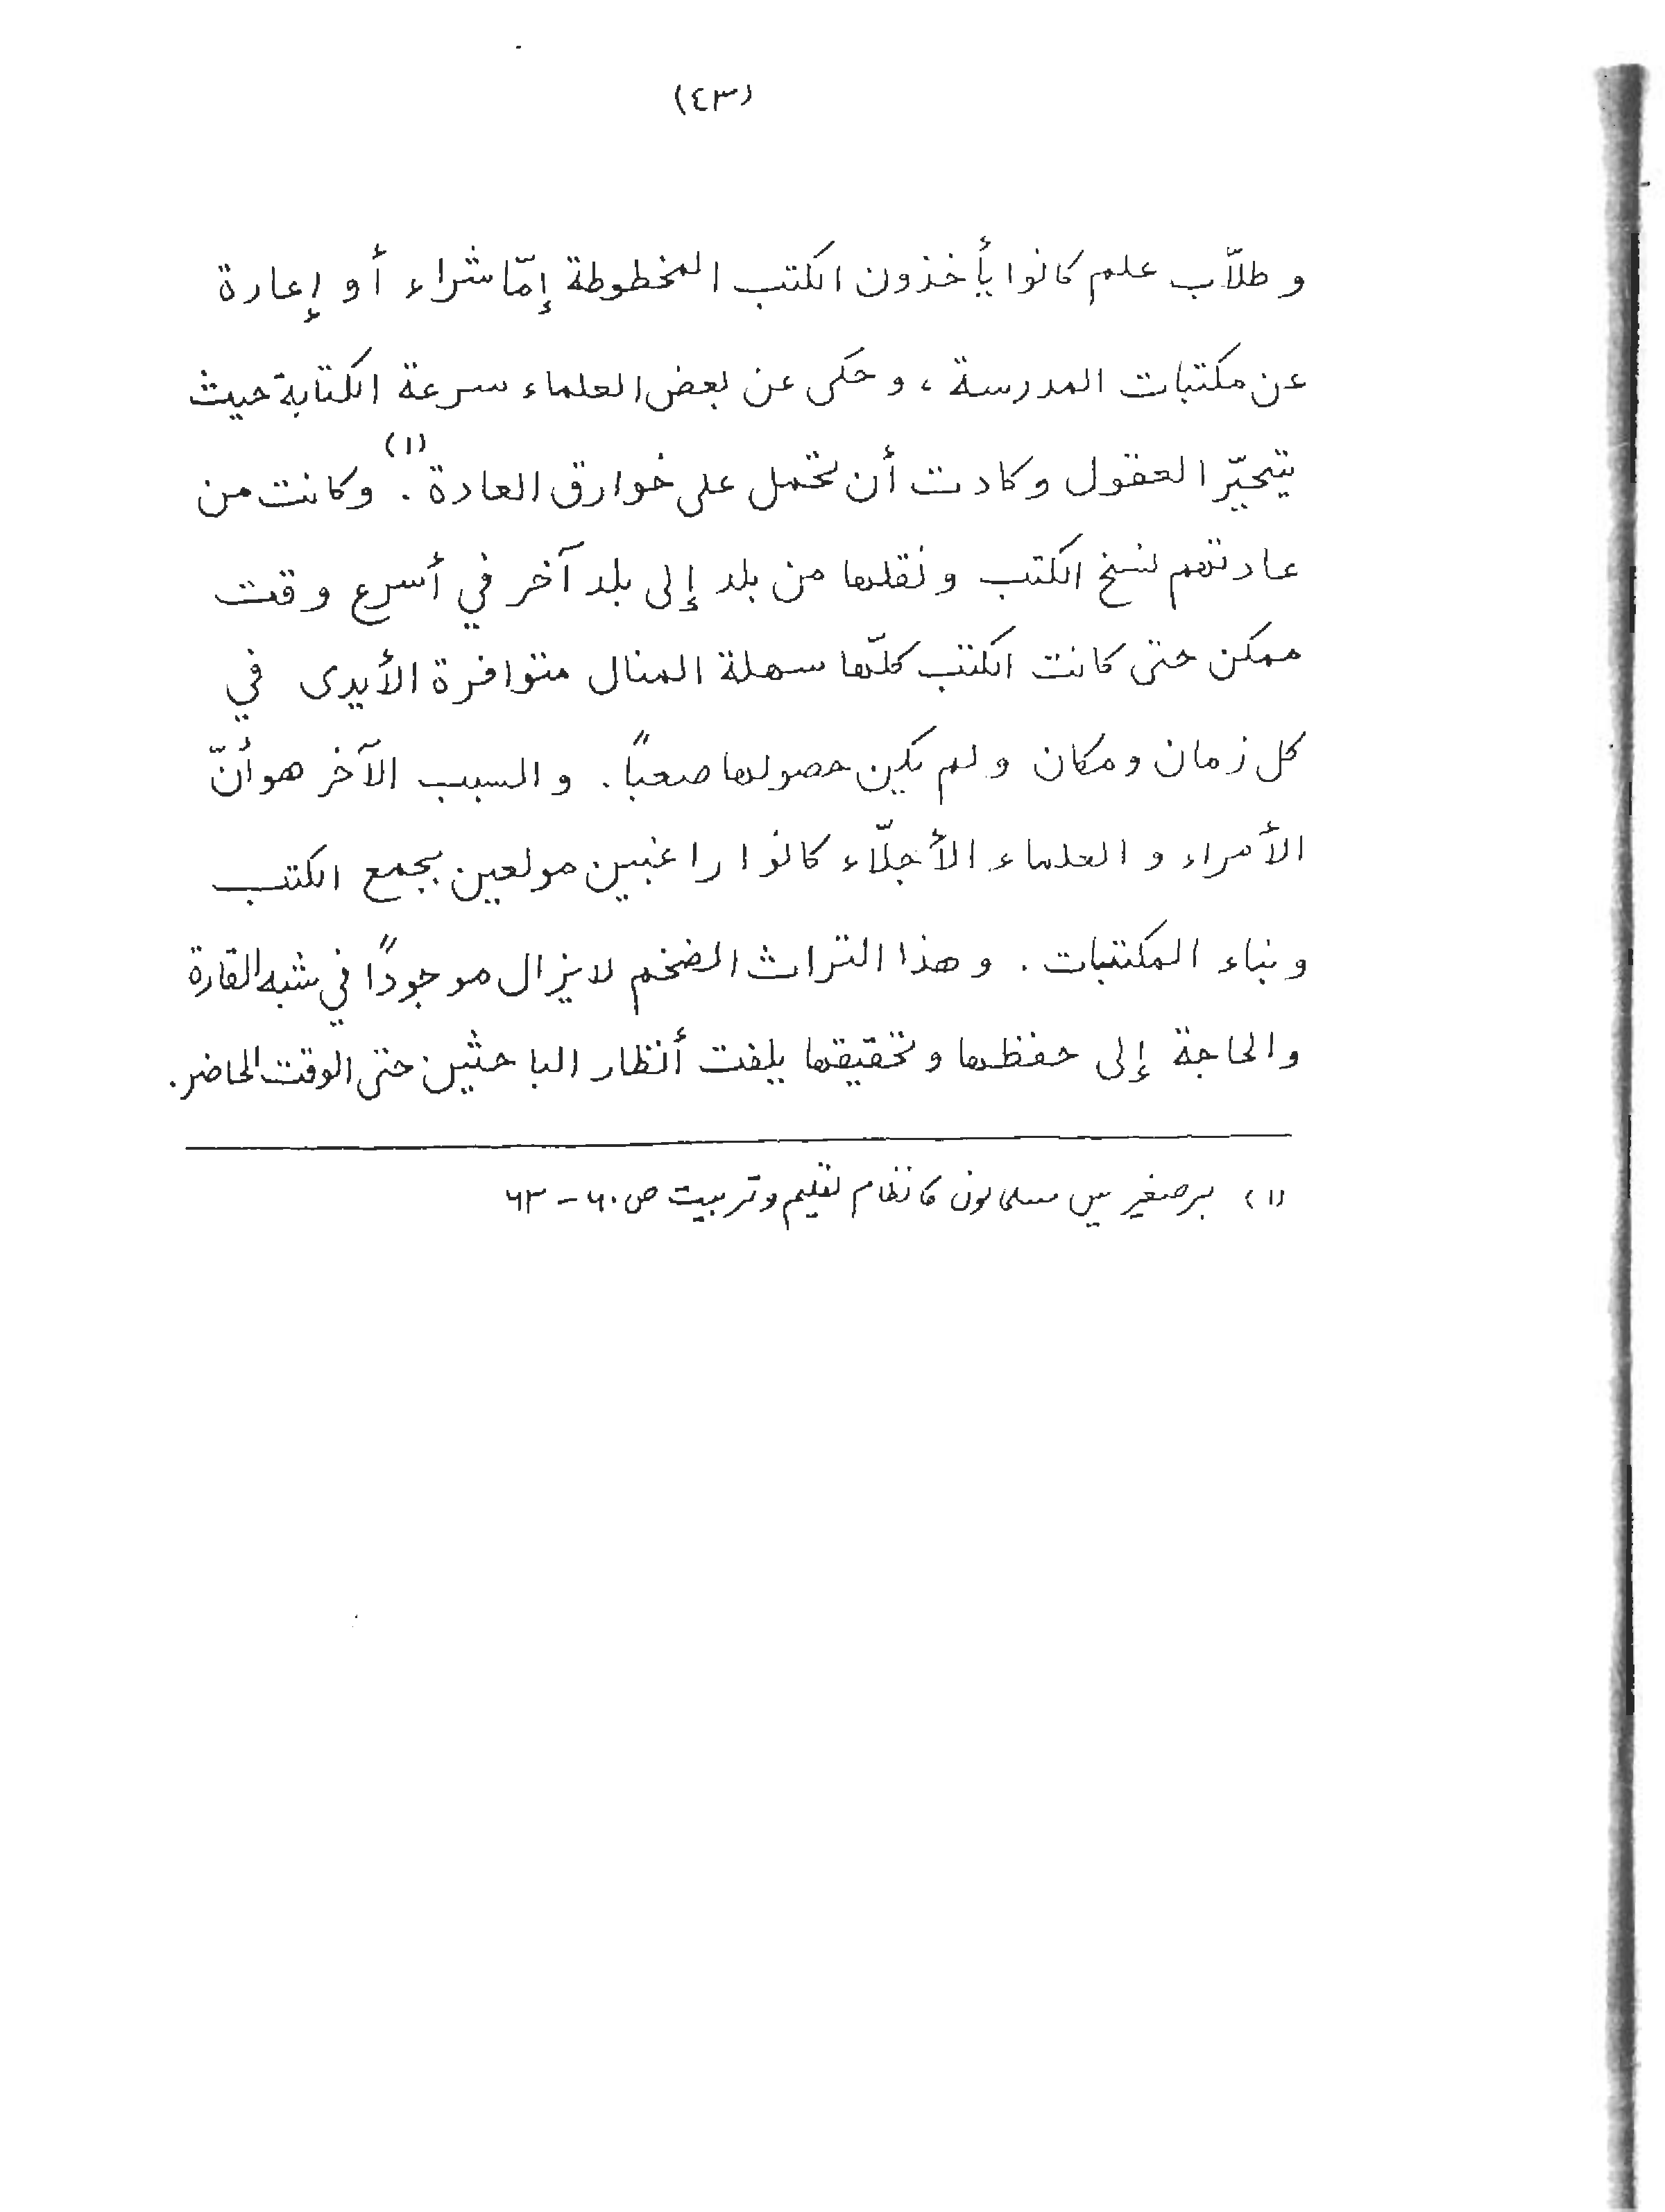 (٤٣)
و طلّاب علم كانوا يأخذون الكتب المخطوطة إمّا شراء أو إعارة
عن مكتبات المدرسة ، و حكى عن بعض العلماء سرعة الكتابة حيث
يتحيّر العقول و كادت أن تحمل على خوارق العادة (١) . وكانت من
عادتهم نسخ الكتب و نقلها من بلد إلى بلد آخر في أسرع وقت
ممكن حتى كانت الكتب كلّها سهلة المنال متوافرة الأيدى في
كل زمان و مكان و لم يكن حصولها صعبًا . و السبب الآخر هو أنّ
الأمراء و العلماء الأجلّاء كانوا راغبين مولعين بجمع الكتب
و بناء المكتبات . و هذا التراث الضخم لا يزال موجودًا في شبه القارة
والحاجة إلى حفظها و تحقيقها يلفت أنظار الباحثين حتى الوقت الحاضر .
(١) برصغير میں مسلمانوں کا نظام تعلیم و تربیت ص ٦٠ - ٦٣